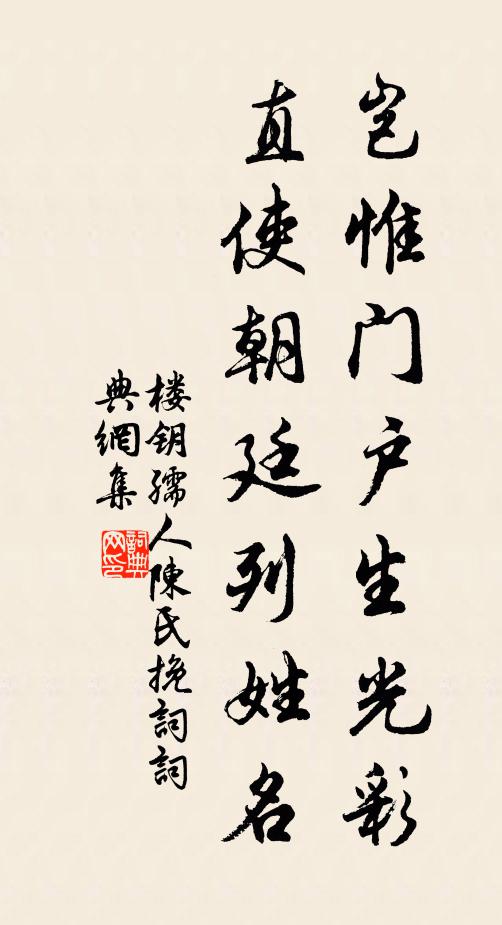 岂惟门户生光彩
直使朝廷列姓名
楼钥孺人陳氏挽詞詞
典網集
詞典网印